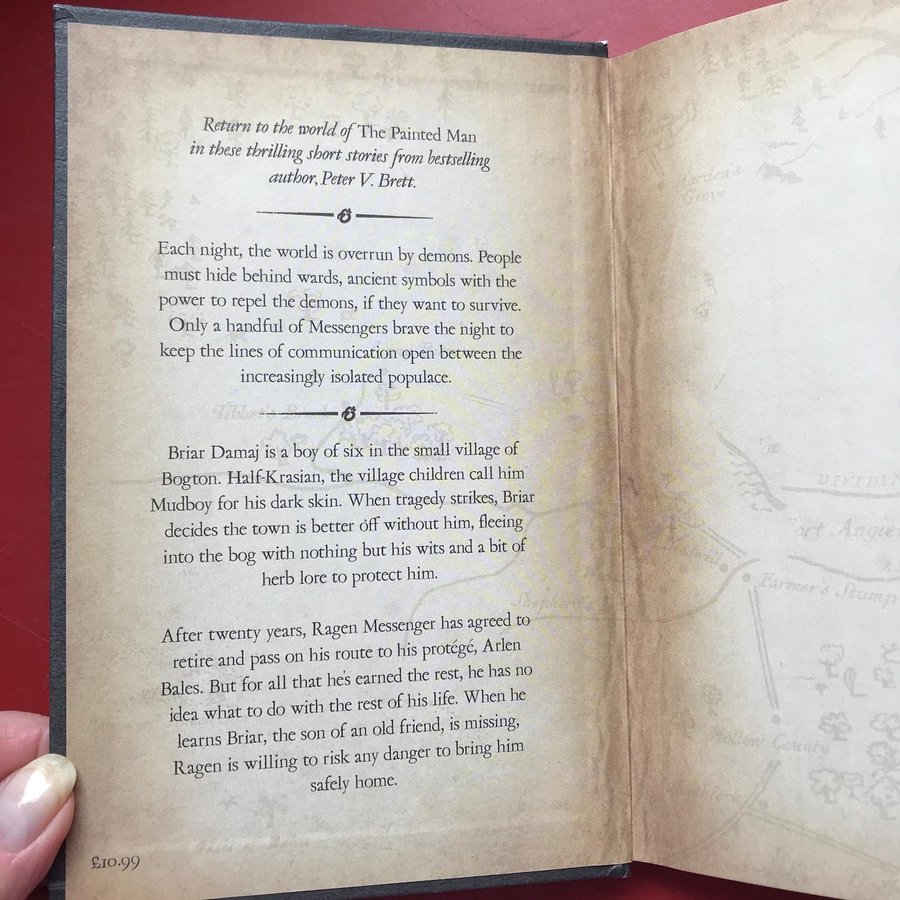 Return to the world of The Painted Man
in these thrilling short stories from bestselling
author, Peter V. Brett.
Each night, the world is overrun by demons. People
must hide behind wards, ancient symbols with the
power to repel the demons, if they want to survive.
Only a handful of Messengers brave the night to
keep the lines of communication open between the
increasingly isolated populace.
Briar Damaj is a boy of six in the small village of
Bogton. Half-Krasian, the village children call him
Mudboy for his dark skin. When tragedy strikes, Briar
decides the town is better off without him, fleeing
into the bog with nothing but his wits and a bit of
herb lore to protect him.
After twenty years, Ragen Messenger has agreed to
retire and pass on his route to his protégé, Arlen
Bales. But for all that he's earned the rest, he has no
idea what to do with the rest of his life. When he
learns Briar, the son of an old friend, is missing,
Ragen is willing to risk any danger to bring him
safely home.
£10.99
Harden's
Grove
DIVIDIN
ort Angie
Farmer's Stump
County